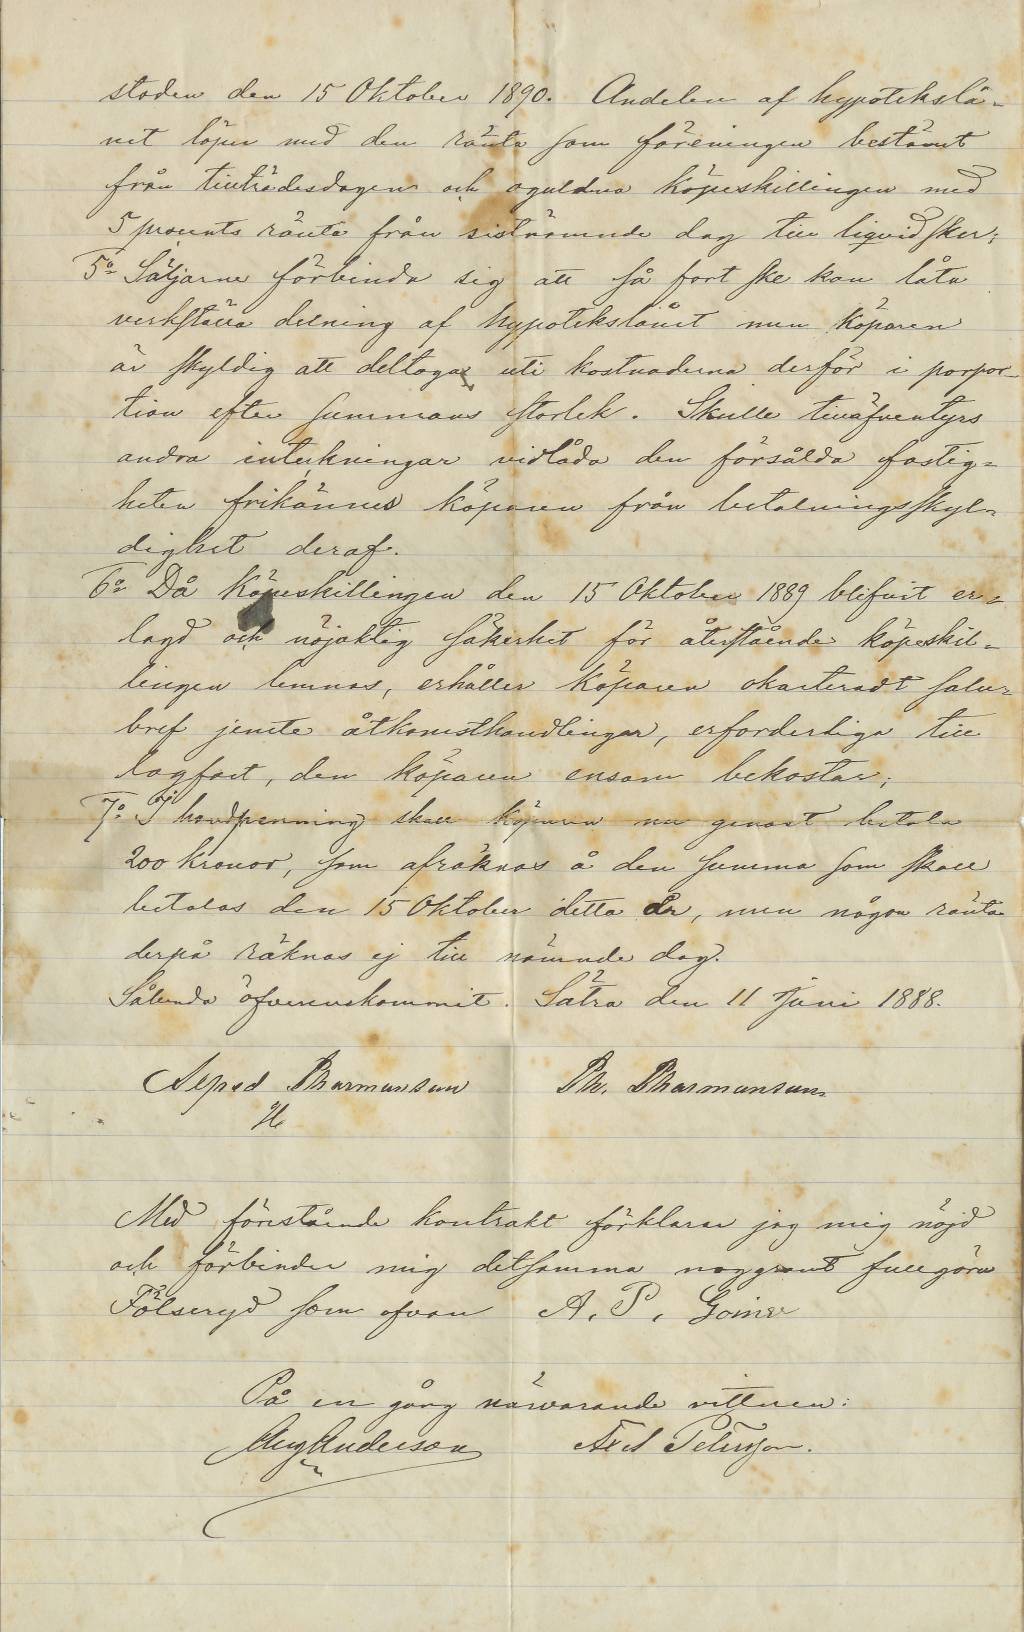 staden den 15 Oktober 1890. Andelen af hypotekslå-
net löper med den ränta som föreningen bestämt
från tillträdesdagen och oguldna köpeskillingen med
5 procents ränta från sistnämnde dag till liqvid sker;
5o Säljarne förbinda sig att så fort ske kan låta
verkställa delning af hypotekslånet men köparen
är skyldig att deltaga uti kostnaderna derför i porpor-
tion efter summans storlek. Skulle tilläfventyrs
andra inteckningar vidlåda den försålda fastig=
heten frikännes köparen från betalningsskyl=
dighet deraf.
6o Då Köpeskillingen den 15 Oktober 1889 blifvit er=
lagd och nöjaktig säkerhet för återstående köpeskil=
lingen lemnas, erhåller Köparen okasteradt salu=
bref jemte åtkomsthandlingar, erforderliga till
lagfart, den köparen ensam bekostar;
7o I handpenning skall köparen nu genast betala
200 kronor, som afräknas å den summa som skall
betalas den 15 Oktober detta år, men någon ränta
derpå räknas ej till nämnde dag.
Sålunda öfverenskommit. Sätra den 11 Juni 1888.
Alfred Thermansson Th. Thermansson
Med förestående kontrakt förklarar jag mig nöjd
och förbinder mig detsamma noggrant fullgöra
som ofvan A. P.
På en gång närvarande vittnen:
Aug Anderson Axel Petersson.